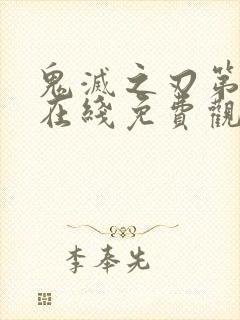 鬼滅之刃第
在綫免費觀
李奉先